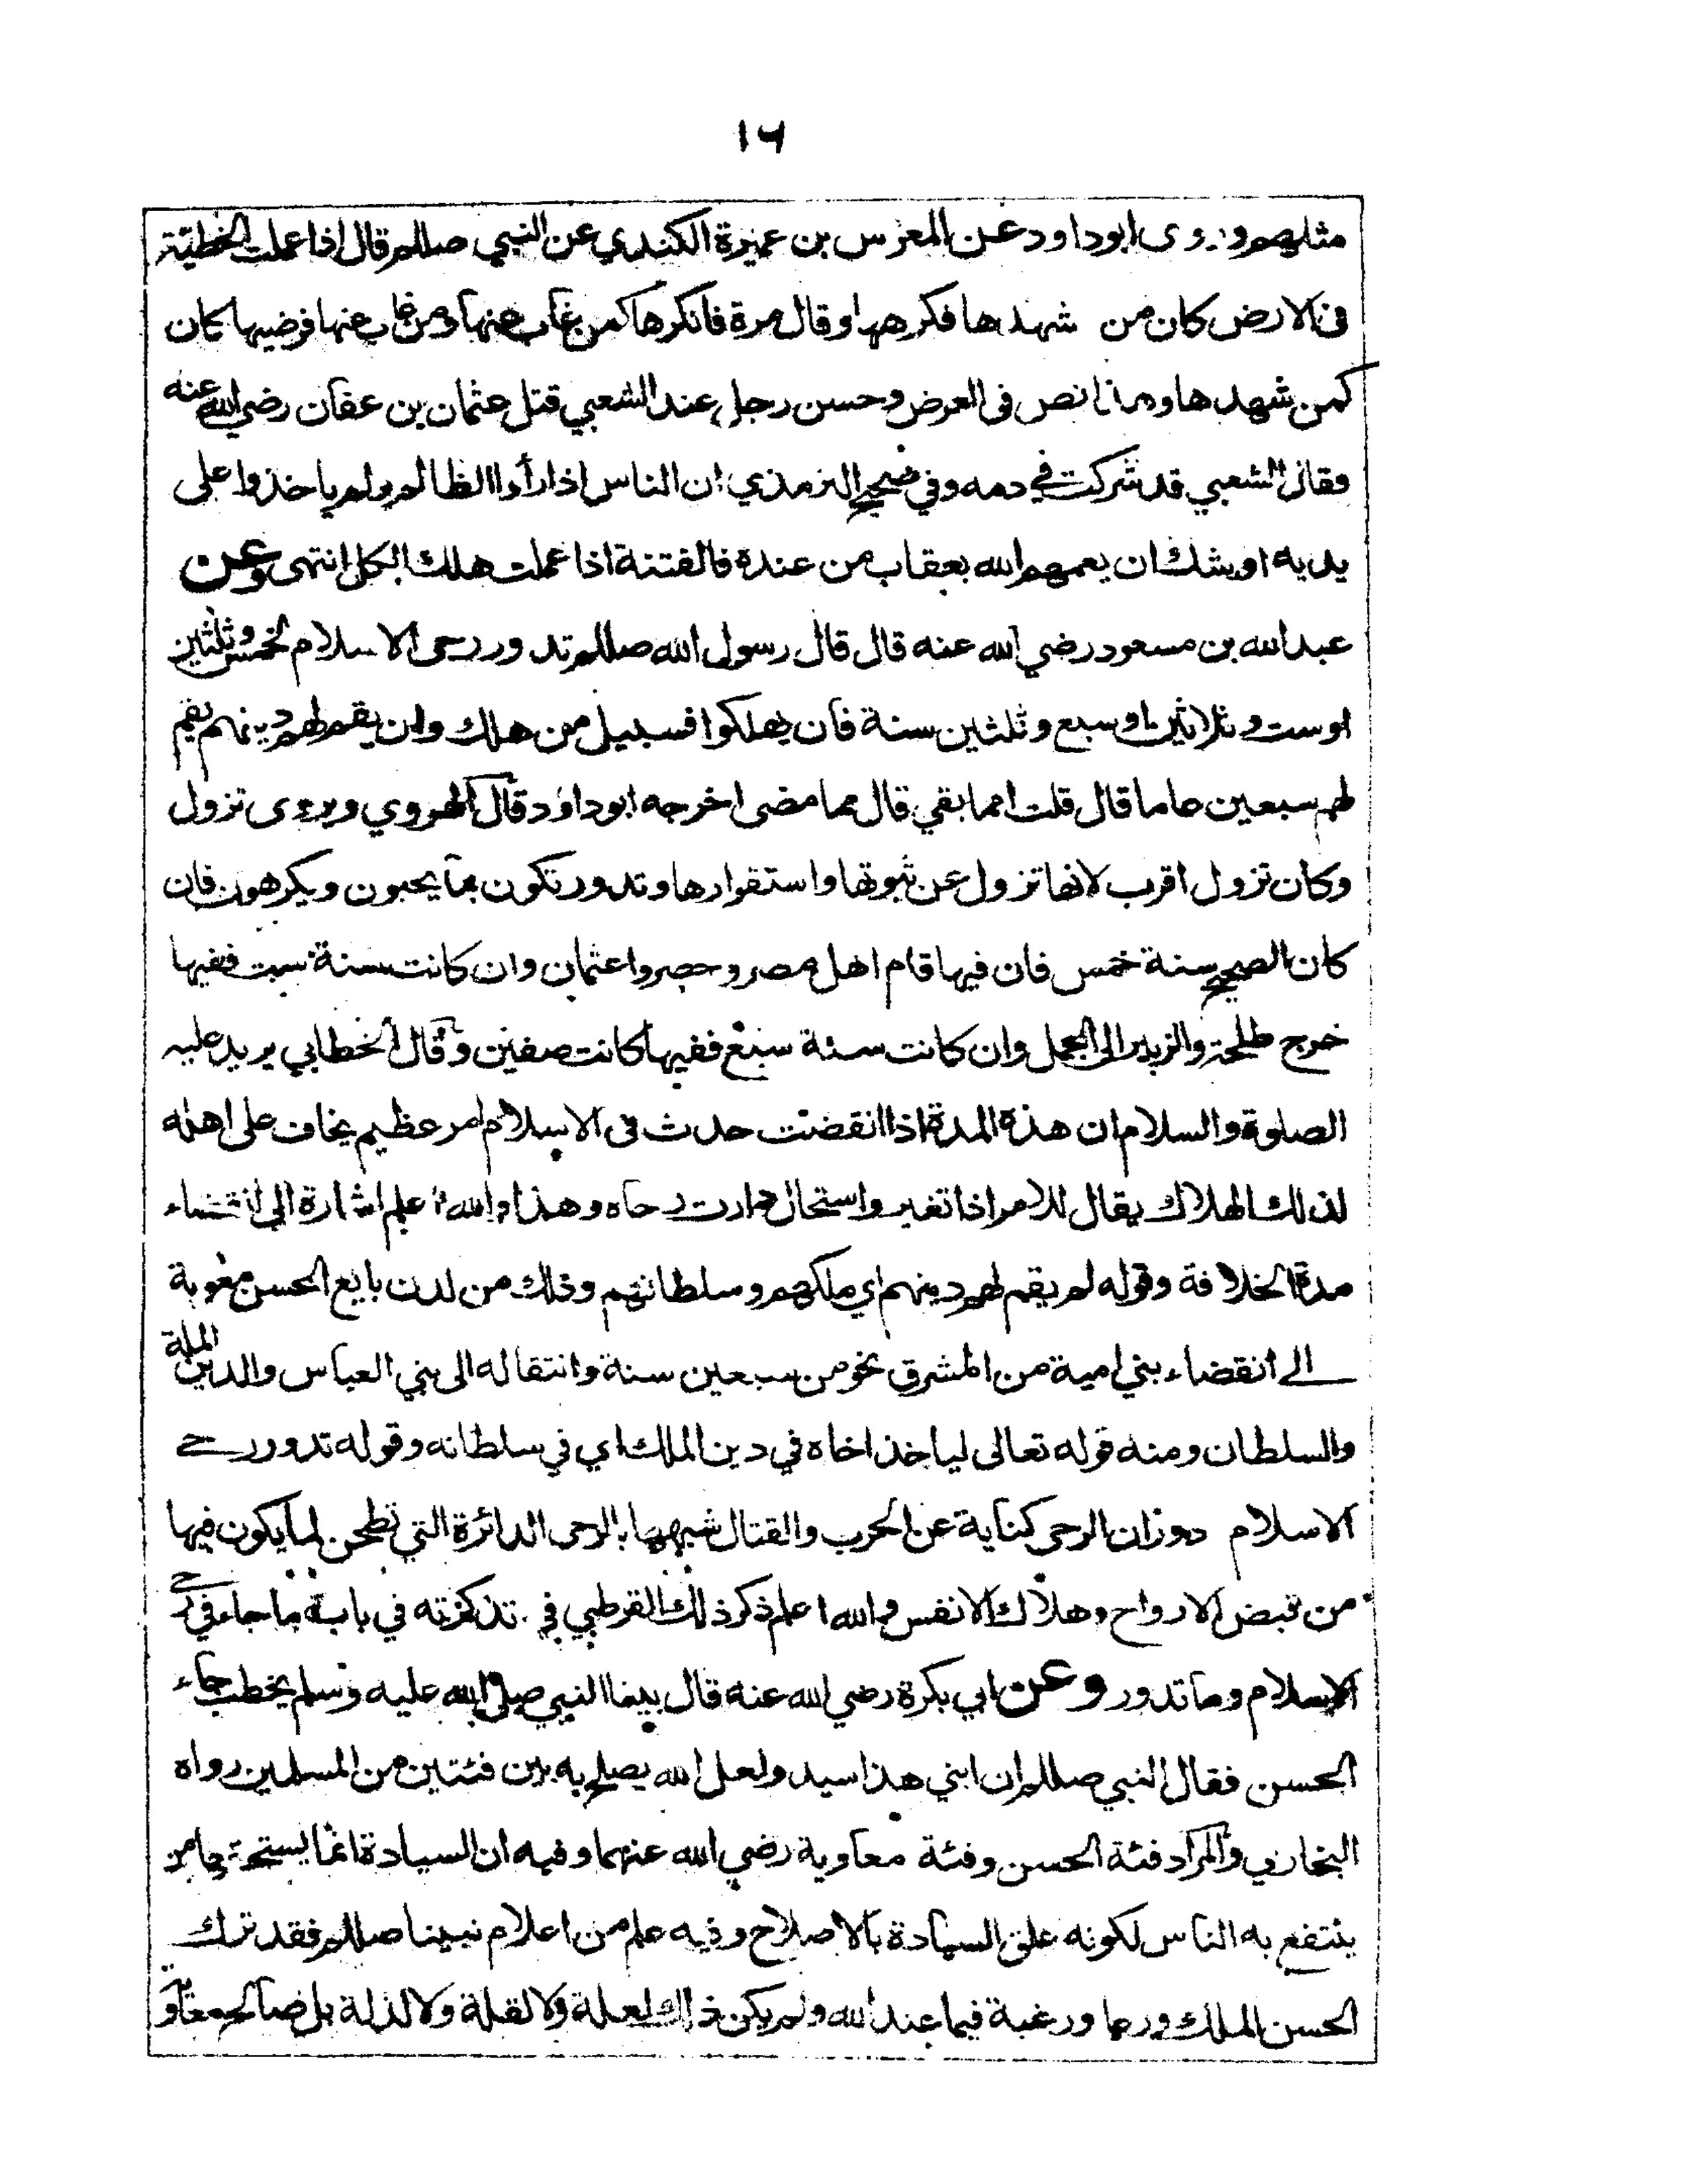 ١٦
مثلهم وروى ابوداود عن المعرس بن عميرة الكندي عن النبي صللم قال اذا عملت الخطيئة
فى الارض كان من شهدها فكرهها وقال مرة فانكرها كمن غاب عنها ومن غاب عنها فرضيها كان
كمن شهدها وهذا نص فى العرض وحسن رجل عند الشعبي قتل عثمان بن عفان رضي الله عنه
وقال الشعبي قد شركت في دمه وفي صحيح الترمذي ان الناس اذا رأوا الظالم ولم ياخذوا على
يديه اوشك ان يعمهم الله بعقاب من عنده فالفتنة اذا عملت هلك الكل انتهى وعن
عبد الله بن مسعود رضي الله عنه قال قال رسول الله صللم تدور رحى الاسلام لخمس وثلثين
اوست وثلاثين اوسبع وثلثين سنة فان يهلكوا فسبيل من هلك وان يقم لهم دينهم يقم
لهم سبعين عاما قال قلت امما بقي قال مما مضى اخرجه ابوداؤد قال الهروي ويروى تزول
وكان تزول اقرب لانها تزول عن ثبوتها واستقرارها وتدور تكون بما يحبون ويكرهون فان
كان الصحيح سنة خمس فان فيها قام اهل مصر وحصروا عثمان وان كانت سنة ست ففيها
خرج طلحة والزبير الى الجمل وان كانت سنة سبع ففيها كانت صفين وقال الخطابي يريد عليه
الصلوة والسلام ان هذه المدة اذا انقضت حدث فى الاسلام امر عظيم يخاف على اهله
لذلك الهلاك يقال للامر اذا تغير واستحال دارت رحاه وهذا والله اعلم اشارة الى انقضاء
مدة الخلافة وقوله لم يقم لهم دينهم اي ملكهم وسلطانهم وذلك من لدن بايع الحسن معوية
الى انقضاء بني امية من المشرق نحو من سبعين سنة وانتقاله الى بني العباس والدين الملة
والسلطان ومنه قوله تعالى لياخذ اخاه في دين الملك اي في سلطانه وقوله تدور رحى
الاسلام دوران الرحى كناية عن الحرب والقتال شبهها بالرحى الدائرة التي تطحن لما يكون فيها
من قبض الارواح وهلاك الانفس والله اعلم ذكر ذلك القرطبي في تذكرته في باب ما جاء في رحى
الاسلام وما تدور وعن ابي بكرة رضي الله عنه قال بينا النبي صلى الله عليه وسلم يخطب جاء
الحسن فقال النبي صللم ان ابني هذا سيد ولعل الله يصلح به بين فئتين من المسلمين رواه
البخاري والمراد فئة الحسن وفئة معاوية رضي الله عنهما وفيه ان السيادة انما يستحقها من
ينتفع به الناس لكونه علق السيادة بالاصلاح وفيه علم من اعلام نبينا صللم فقد ترك
الحسن الملك ورعا ورغبة فيما عند الله ولم يكن ذلك لعلة ولا لقلة ولا لذلة بل صالح معاوية